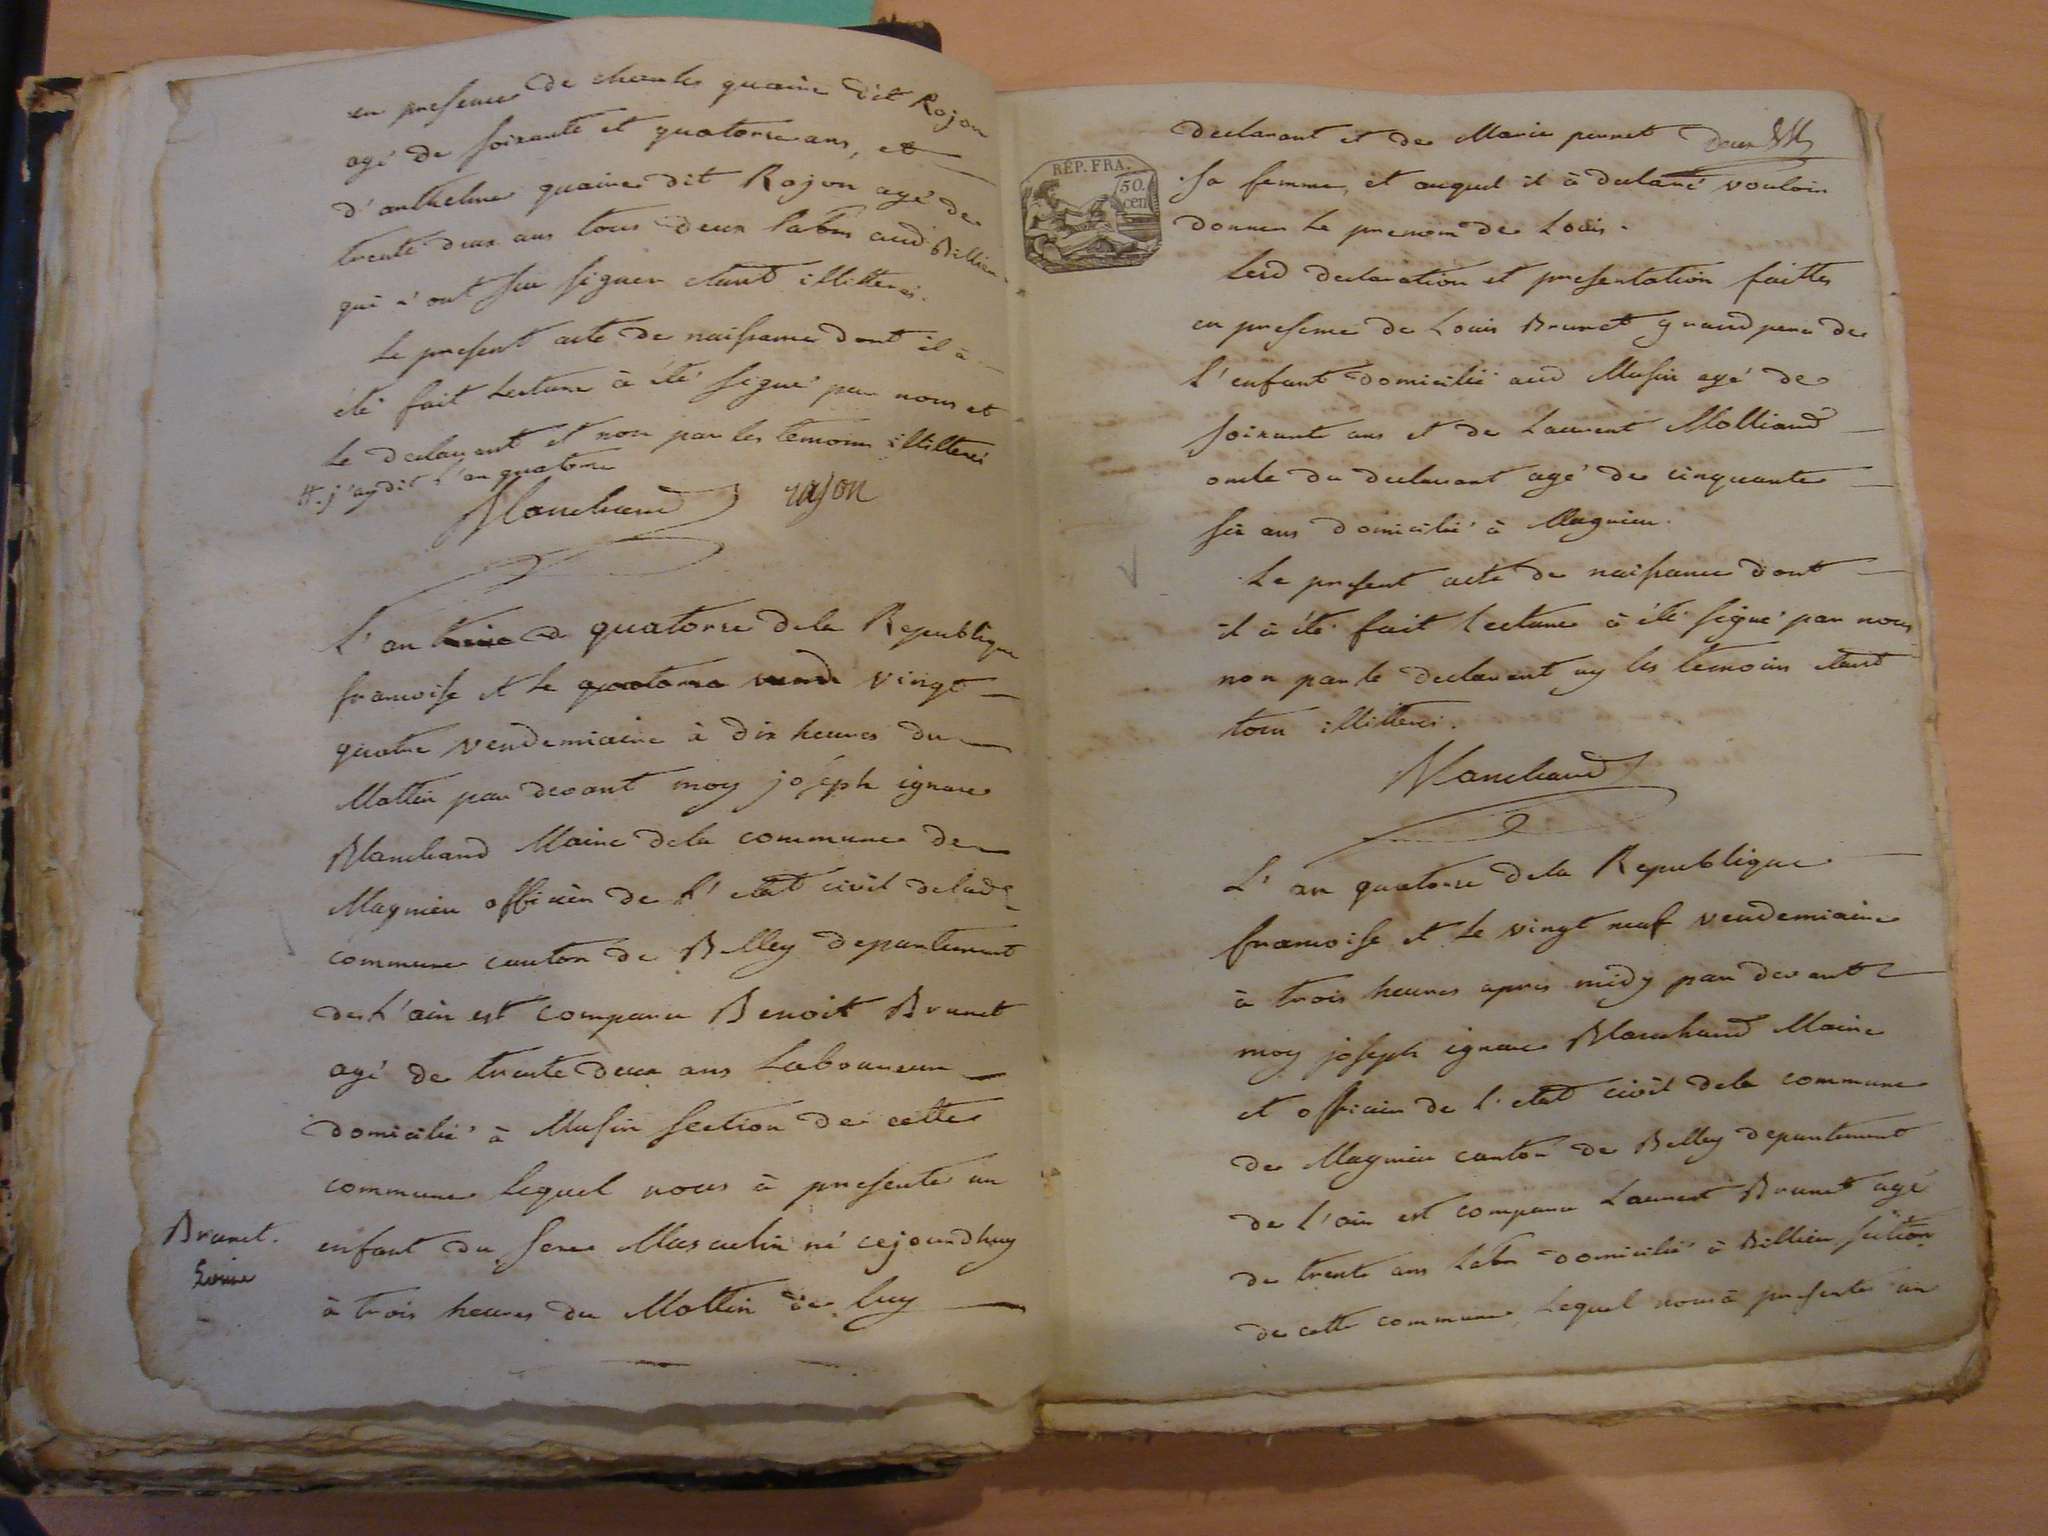 en presence de charles quaine dit Rojon
agé de soixante et quatorse ans, et
d'anthelme quaine dit Rojon agé de
trente deux ans tous deux labrs aud Billieu
qui n'ont seu signer etant illitteres.
Le present acte de naissance dont il à
été fait Lecture à été signé par nous et
Le declarant et non par les temoins illitteres
#. j'ay dit l'an quatorse
Blanchand rajon
L'an quatorse de la Republique
francoise et Le vingt
quatre vendemiaire à dix heures du
Mattin par devant moy joseph ignace
Blanchand Maire de la commune de
Magnieu officier de l'etat civil de lad
commune canton de Belley departement
de L'ain est comparu Benoit Brunet
agé de trente deux ans Laboureur
domicilié à Musin section de cette
commune Lequel nous à presente un
Brunet.
Louis
enfant du sexe Masculin né cejourdhuy
à trois heures du Mattin de luy
declarant et de Marie pernet
sa femme, et auquel il à declaré vouloir
donner Le prenom de Louis.
Lesd declaration et presentation faittes
en presence de Louis Brunet grand pere de
L'enfant domicilié aud Musin agé de
soixante ans et de Laurent Molliand
oncle du declarant agé de cinquante
six ans domicilié à Magnieu.
Le present acte de naissance dont
il à été fait lecture à été signé par nous
non par le declarant ny les temoins etant
tous illitteres.
Blanchand
RÉP. FRA.
50.
cen
L'an quatorse de la Republique
francoise et Le vingt neuf vendemiaire
à trois heures apres midy par devant
moy joseph ignace Blanchand Maire
et officier de l'etat civil de la commune
de Magnieu canton de Belley departement
de l'ain est comparu Laurent Brunet agé
de trente ans Labr domicilié à Billieu section
de cette commune, Lequel nous à presente un